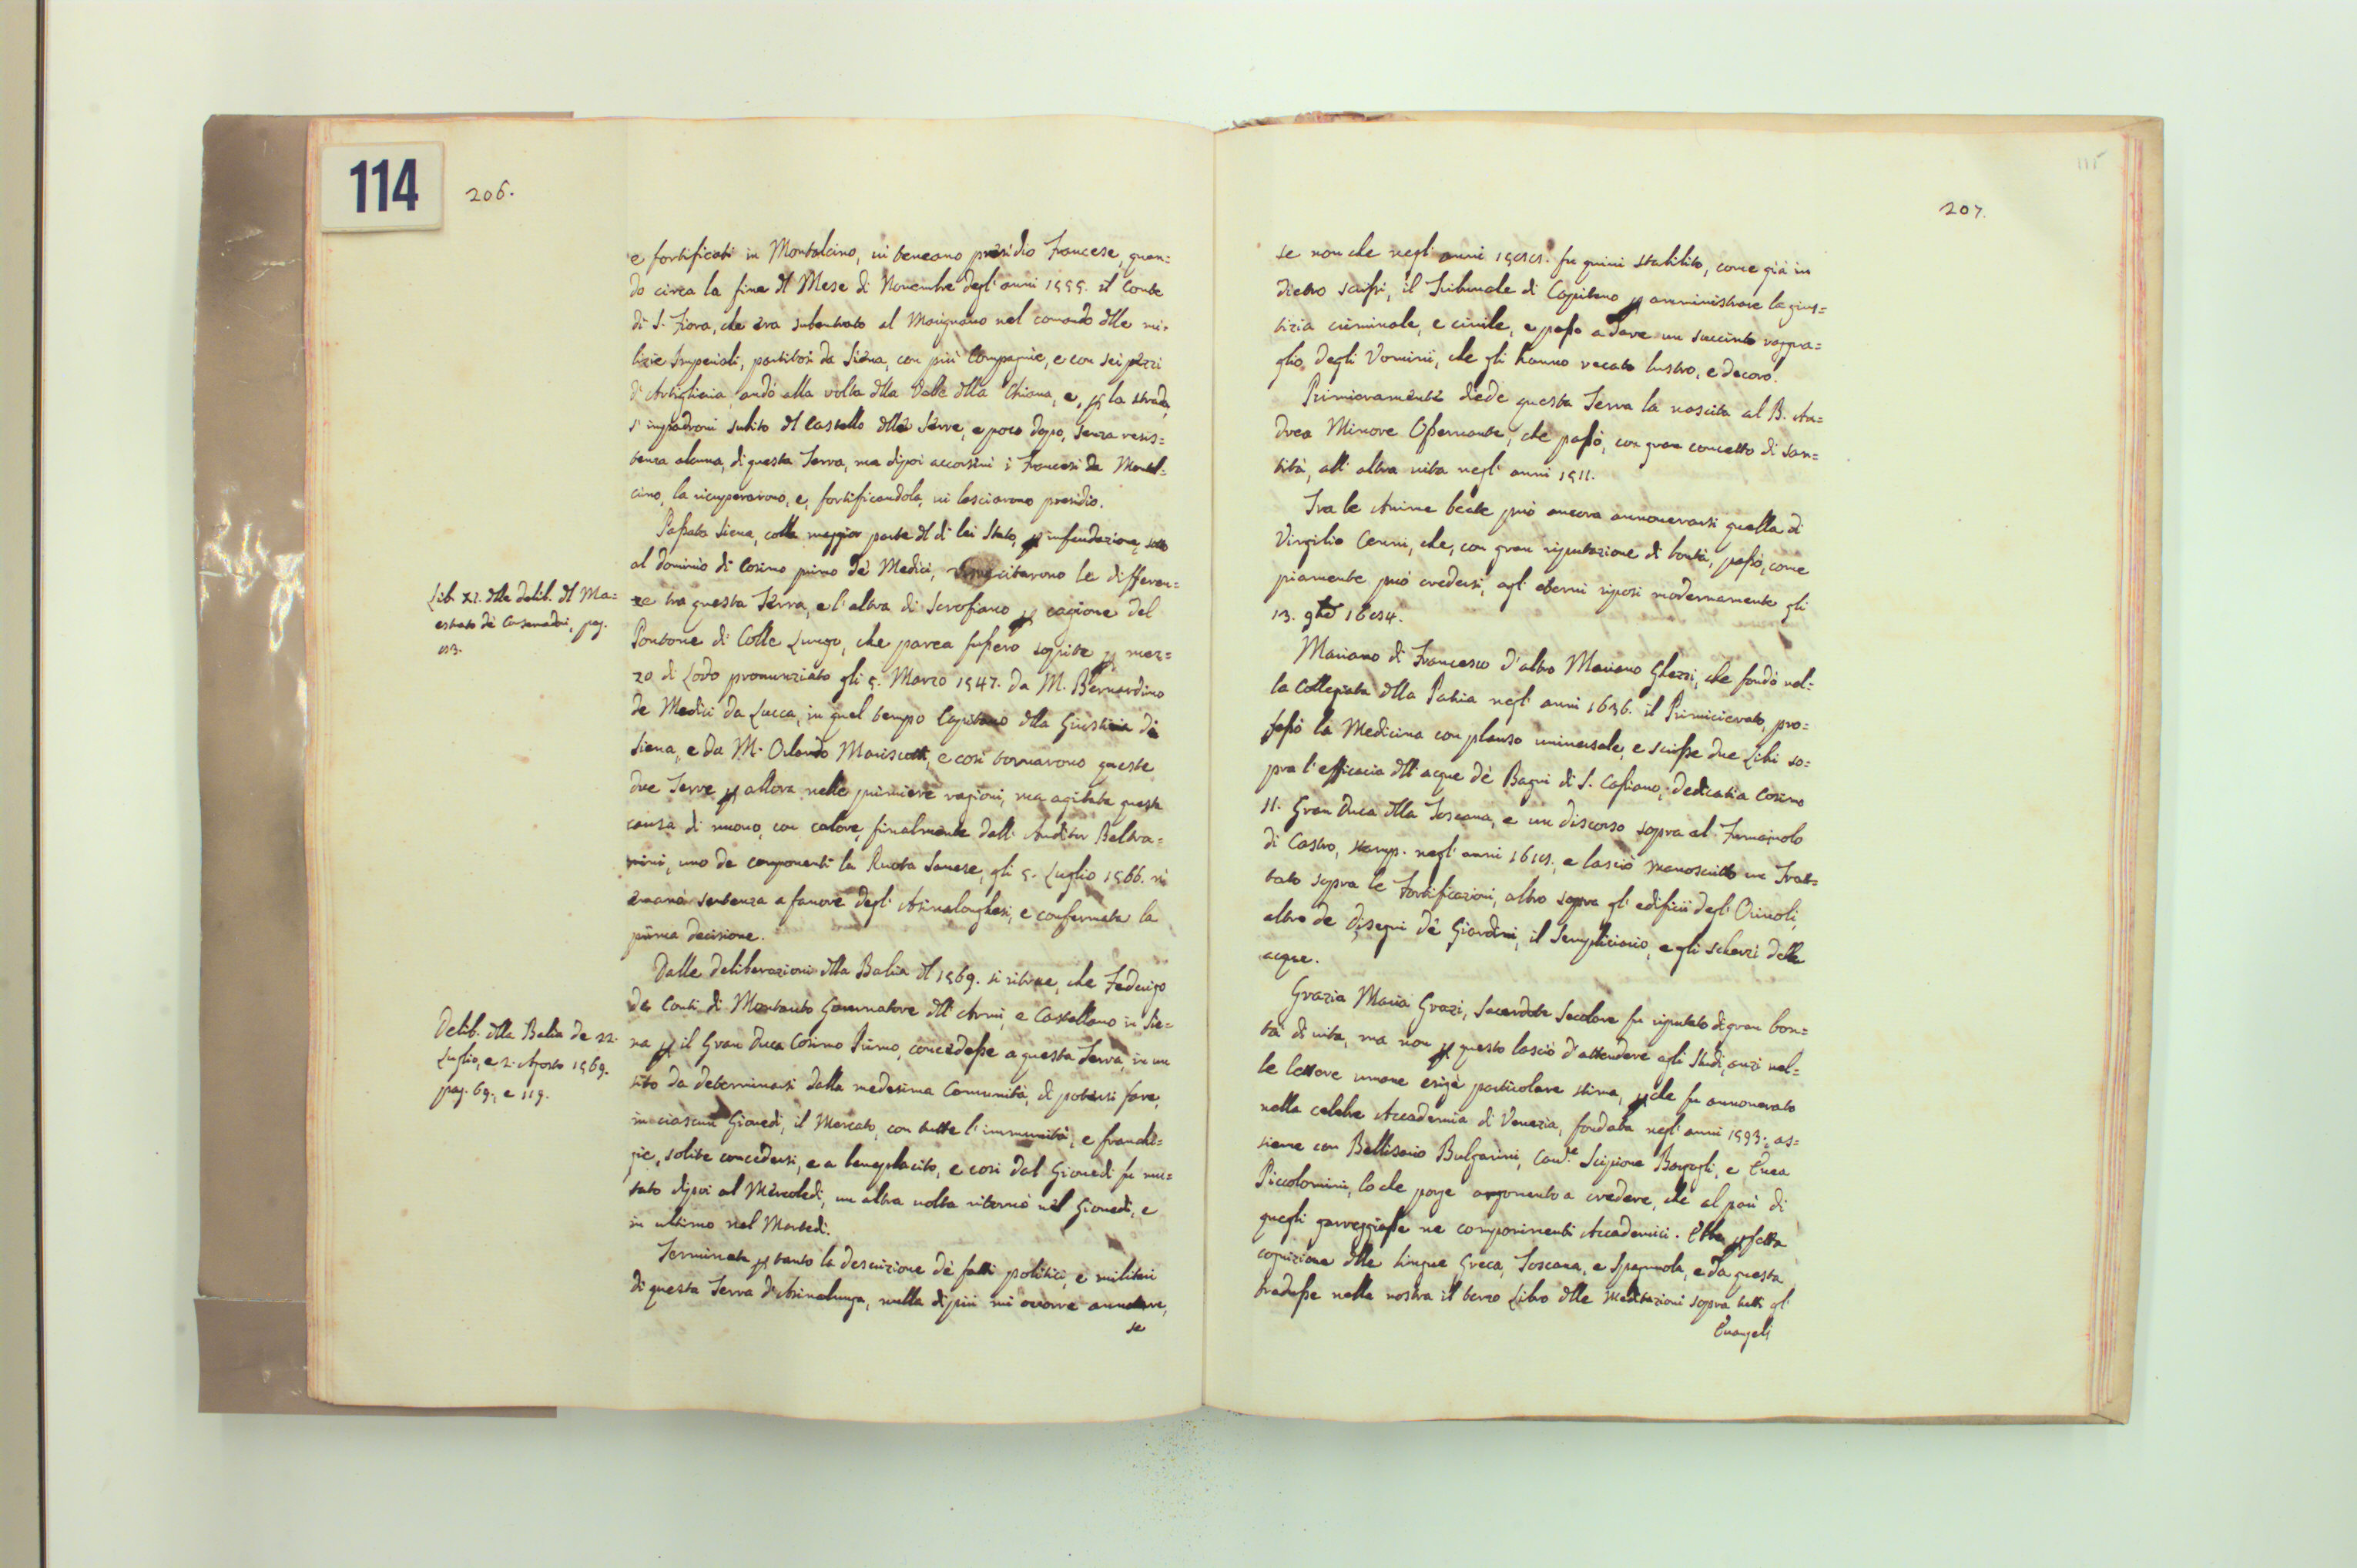 114
206.
e fortificati in Montalcino, ui teneano presidio Francese, quan=
do circa la fine dl Mese di Novembre degl' anni 1555. il Conte
di S. Fiora, che era subentrato al Marignano nel comando dlle mi=
lizie Imperiali, partitosi da Siena, con più Compagnie, e con sei pezzi
d'Artiglieria, andò alla volta dlla Valle dlla Chiana, e, p la strada,
s' impadronì subito dl Castello dlle Serre, e poco dopo, senza resis=
tenza alcuna, di questa Terra, ma dipoi accorsivi i Francesi da Montal=
cino, la ricuperarono, e, fortificandola, ui lasciarono presidio.
Passata Siena, colla maggior parte dl di lei Stato, p infeudazione, sotto
al dominio di Cosimo primo de' Medici, le differen=
Lib. XI. dlle delib. dl Ma=
estrato de' Conservadori, pag.
ze tra questa Terra, e l'altra di Scrofiano p cagione del
Pontone di Colle Lungo, che parea fussero sopite p mez=
zo di Lodo pronunziato gli 5. Marzo 1547. da M. Bernardino
de Medici da Lucca, in quel tempo Capitano dlla Giustizia di
Siena, e da M. Orlando Mariscotti, e così tornarono queste
due Terre p allora nelle primiere ragioni, ma agitata questa
causa di nuovo, con calore, finalmente dall' Auditor Beltra=
mini, uno de componenti la Ruota Sanese, gli 5. Luglio 1566. si
emanò sentenza a favore degl' Asinalonghesi, e confermata la
prima decisione.
Dalle deliberazioni dlla Balia dl 1569. si ritrae, che Federigo
de Conti di Montauto Governatore dll' Armi, e Castellano in Sie=
Delib. dlla Balia de 22.
Luglio, e 2. Agosto 1569.
pag. 69., e 119.
na p il Gran Duca Cosimo Primo, concedesse a questa Terra, in un
sito da determinarsi dalla medesima Comunità, di potersi fare,
in ciascun Giovedì, il Mercato, con tutte l' immunità, e franchi=
gie, solite concedersi, e a beneplacito, e così dal Giovedì fu mu=
tato dipoi al Mercoledì, un altra volta ritornò nel Giovedì, e
in ultimo nel Martedì.
Terminata p tanto la descrizione de' fatti politici, e militari
di questa Terra d'Asinalunga, nulla di più mi occorre annotare,
se
115
207.
se non che negl' anni fu quivi stabilito, come già in
dietro scrissi, il Tribunale di Capitano p amministrare la gius=
tizia criminale, e civile, e passo a dare un succinto raggua=
glio degli Uomini, che gli hanno recato lustro, e decoro.
Primieramente diede questa Terra la nascita al B. An=
drea Minore Osservante, che passò, con gran concetto di san=
tità, all' altra vita negl' anni 1511.
Tra le Anime beate può ancora annoverarsi quella di
Virgilio Cenni, che, con gran riputazione di bontà, passò, come
piamente può credersi, agl' eterni riposi modernamente gli
Mariano di Francesco d'altro Mariano Ghezzi, che fondò nel=
la Collegiata dlla Patria negl' anni 1636. il Primicierato, pro=
fessò la Medicina con plauso universale, e scrisse due Libri so=
pra l'efficacia dll' acque de' Bagni di S. Casciano, dedicati a Cosimo
II. Gran Duca dlla Toscana, e un discorso sopra al Fumaiuolo
di Castro, stamp. negl' anni e lasciò manoscritto un Trat=
tato sopra le Fortificazioni, altro sopra gl' edificii degl' Orivoli,
altro de Disegni de' Giardini, il Sempliciario, e gli scherzi delle
acque.
Grazia Maria Grazi, Sacerdote Secolare fu riputato di gran bon=
tà di vita, ma non p questo lasciò d'attendere agli Studi, anzi nel=
le lettere umane esigè particolare stima, p che fu annoverato
nella celebre Accademia di Venezia, fondata negl' anni 1593., as=
sieme con Bellisario Bulgarini, Cav.e Scipione Bargagli, e Enea
Piccolomini, lo che porge argomento a credere, che al pari di
quegli gareggiasse ne componimenti Accademici. Ebbe pfetta
cognizione dlle lingue Greca, Toscana, e Spagnuola, e da questa
tradusse nella nostra il terzo Libro dlle Meditazioni sopra tutti gl'
Evangeli